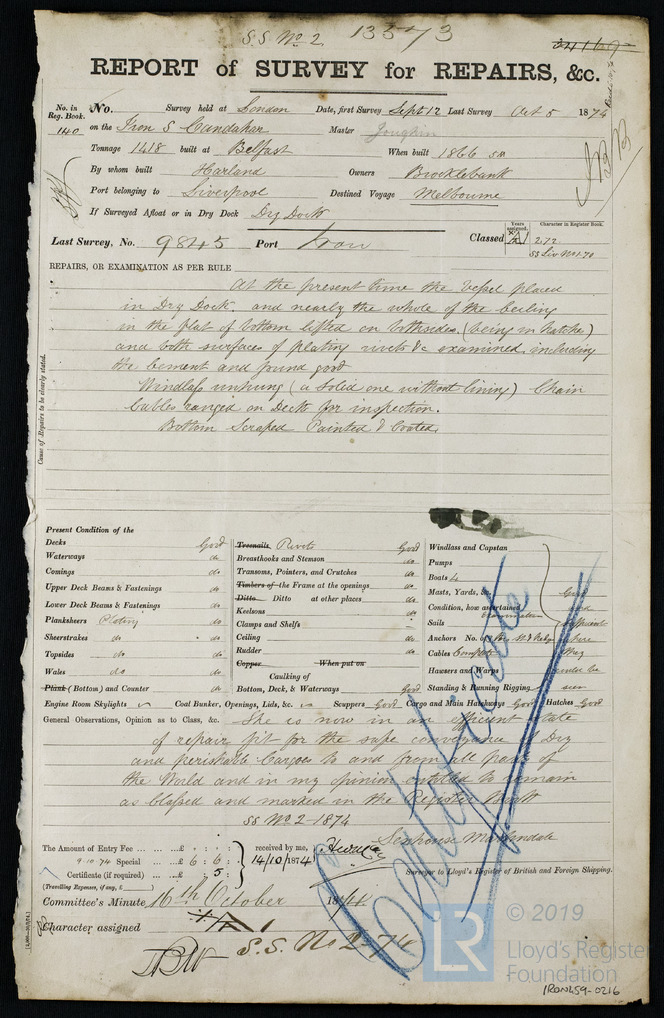 S.S. No. 2. 13573
24169
REPORT of SURVEY for REPAIRS, &c.
No. in Reg. Book. No. Survey held at London Date, first Survey Sept 12 Last Survey Oct 5 1874
140 on the Iron S Candahar Master
Tonnage 1418 built at Belfast When built 1866 5m
By whom built Harland Owners Brocklebank
Port belonging to Liverpool Destined Voyage Melbourne
If Surveyed Afloat or in Dry Dock Dry Dock
Last Survey, No. 9845 Port Iron Classed Years assigned. A1 Character in Register Book. 2.72
SS Liv No1.70
REPAIRS, OR EXAMINATION AS PER RULE
At the present time the Vessel placed
in Dry Dock, and nearly the whole of the ceiling
in the flat of bottom lifted on both sides, (being in hatches)
and both surfaces of plating rivets &c examined, including
the cement and found good
Windlass unhung (a solid one without lining) Chain
Cables ranged on Deck for inspection.
Bottom Scraped Painted & Coated.
Cause of Repairs to be clearly stated.
Present Condition of the
Decks Good
Waterways do
Comings do
Upper Deck Beams & Fastenings do
Lower Deck Beams & Fastenings do
Planksheers Plating do
Sheerstrakes do do
Topsides do do
Wales do do
Plank (Bottom) and Counter do
Treenails Rivets Good
Breasthooks and Stemson do
Transoms, Pointers, and Crutches do
Timbers of the Frame at the openings do
Ditto Ditto at other places do
Keelsons do
Clamps and Shelfs do
Ceiling do
Rudder do
Copper When put on
Caulking of
Bottom, Deck, & Waterways Good
Windlass and Capstan
Pumps
Boats 4
Masts, Yards, &c. Good
Condition, how ascertained and
Sails efficient
Anchors No. where
Cables Complete they
Hawsers and Warps could be
Standing & Running Rigging seen
Engine Room Skylights Coal Bunker, Openings, Lids, &c. Scuppers Good Cargo and Main Hatchways Good Hatches Good
General Observations, Opinion as to Class, &c. She is now in an efficient state
of repair fit for the safe conveyance of Dry
and perishable Cargoes to and from all parts of
the World and in my opinion entitled to remain
as Classed and marked in the Register Book
SS No 2-1874
Senhouse Martindale
Surveyor to Lloyd's Register of British and Foreign Shipping.
The Amount of Entry Fee ... £ : :
9.10.74 Special ... £ 6 : 6 :
Certificate (if required) ... £ : 5 :
(Travelling Expenses, if any, £ )
received by me,
14/10/1874
Committee's Minute 16th October 1874
Character assigned A1
S.S. No 2-74
© 2019
LR
Lloyd's Register
Foundation
IRON459-0216